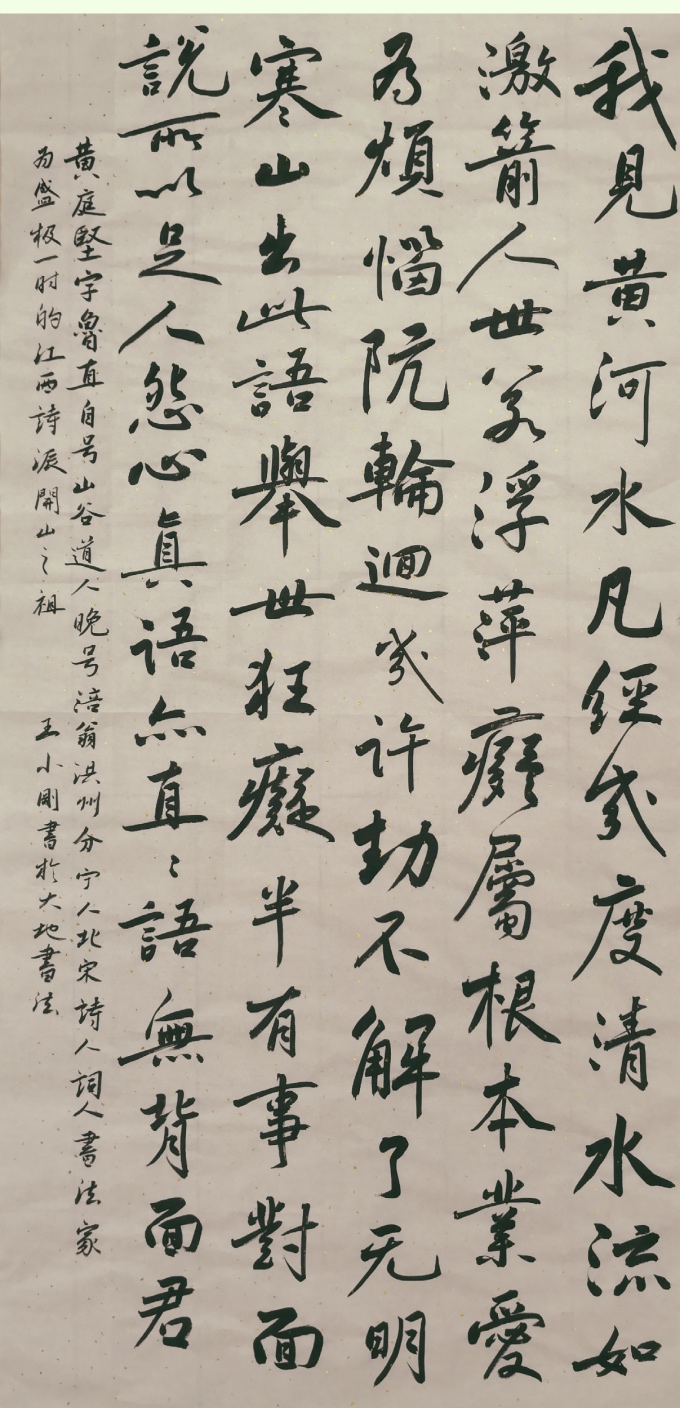 我見黃河水凡經幾度清水流如
激箭人世若浮萍癡屬根本業愛
為煩惱阬輪迴幾許劫不解了无明
寒山出此語舉世狂癡半有事對面
說所以足人怨心真語無直直語無背面君
黃庭堅字魯直自号山谷道人晚号涪翁洪州分宁人北宋詩人詞人書法家
为盛极一时的江西詩派開山之祖 王小剛書於大地書法